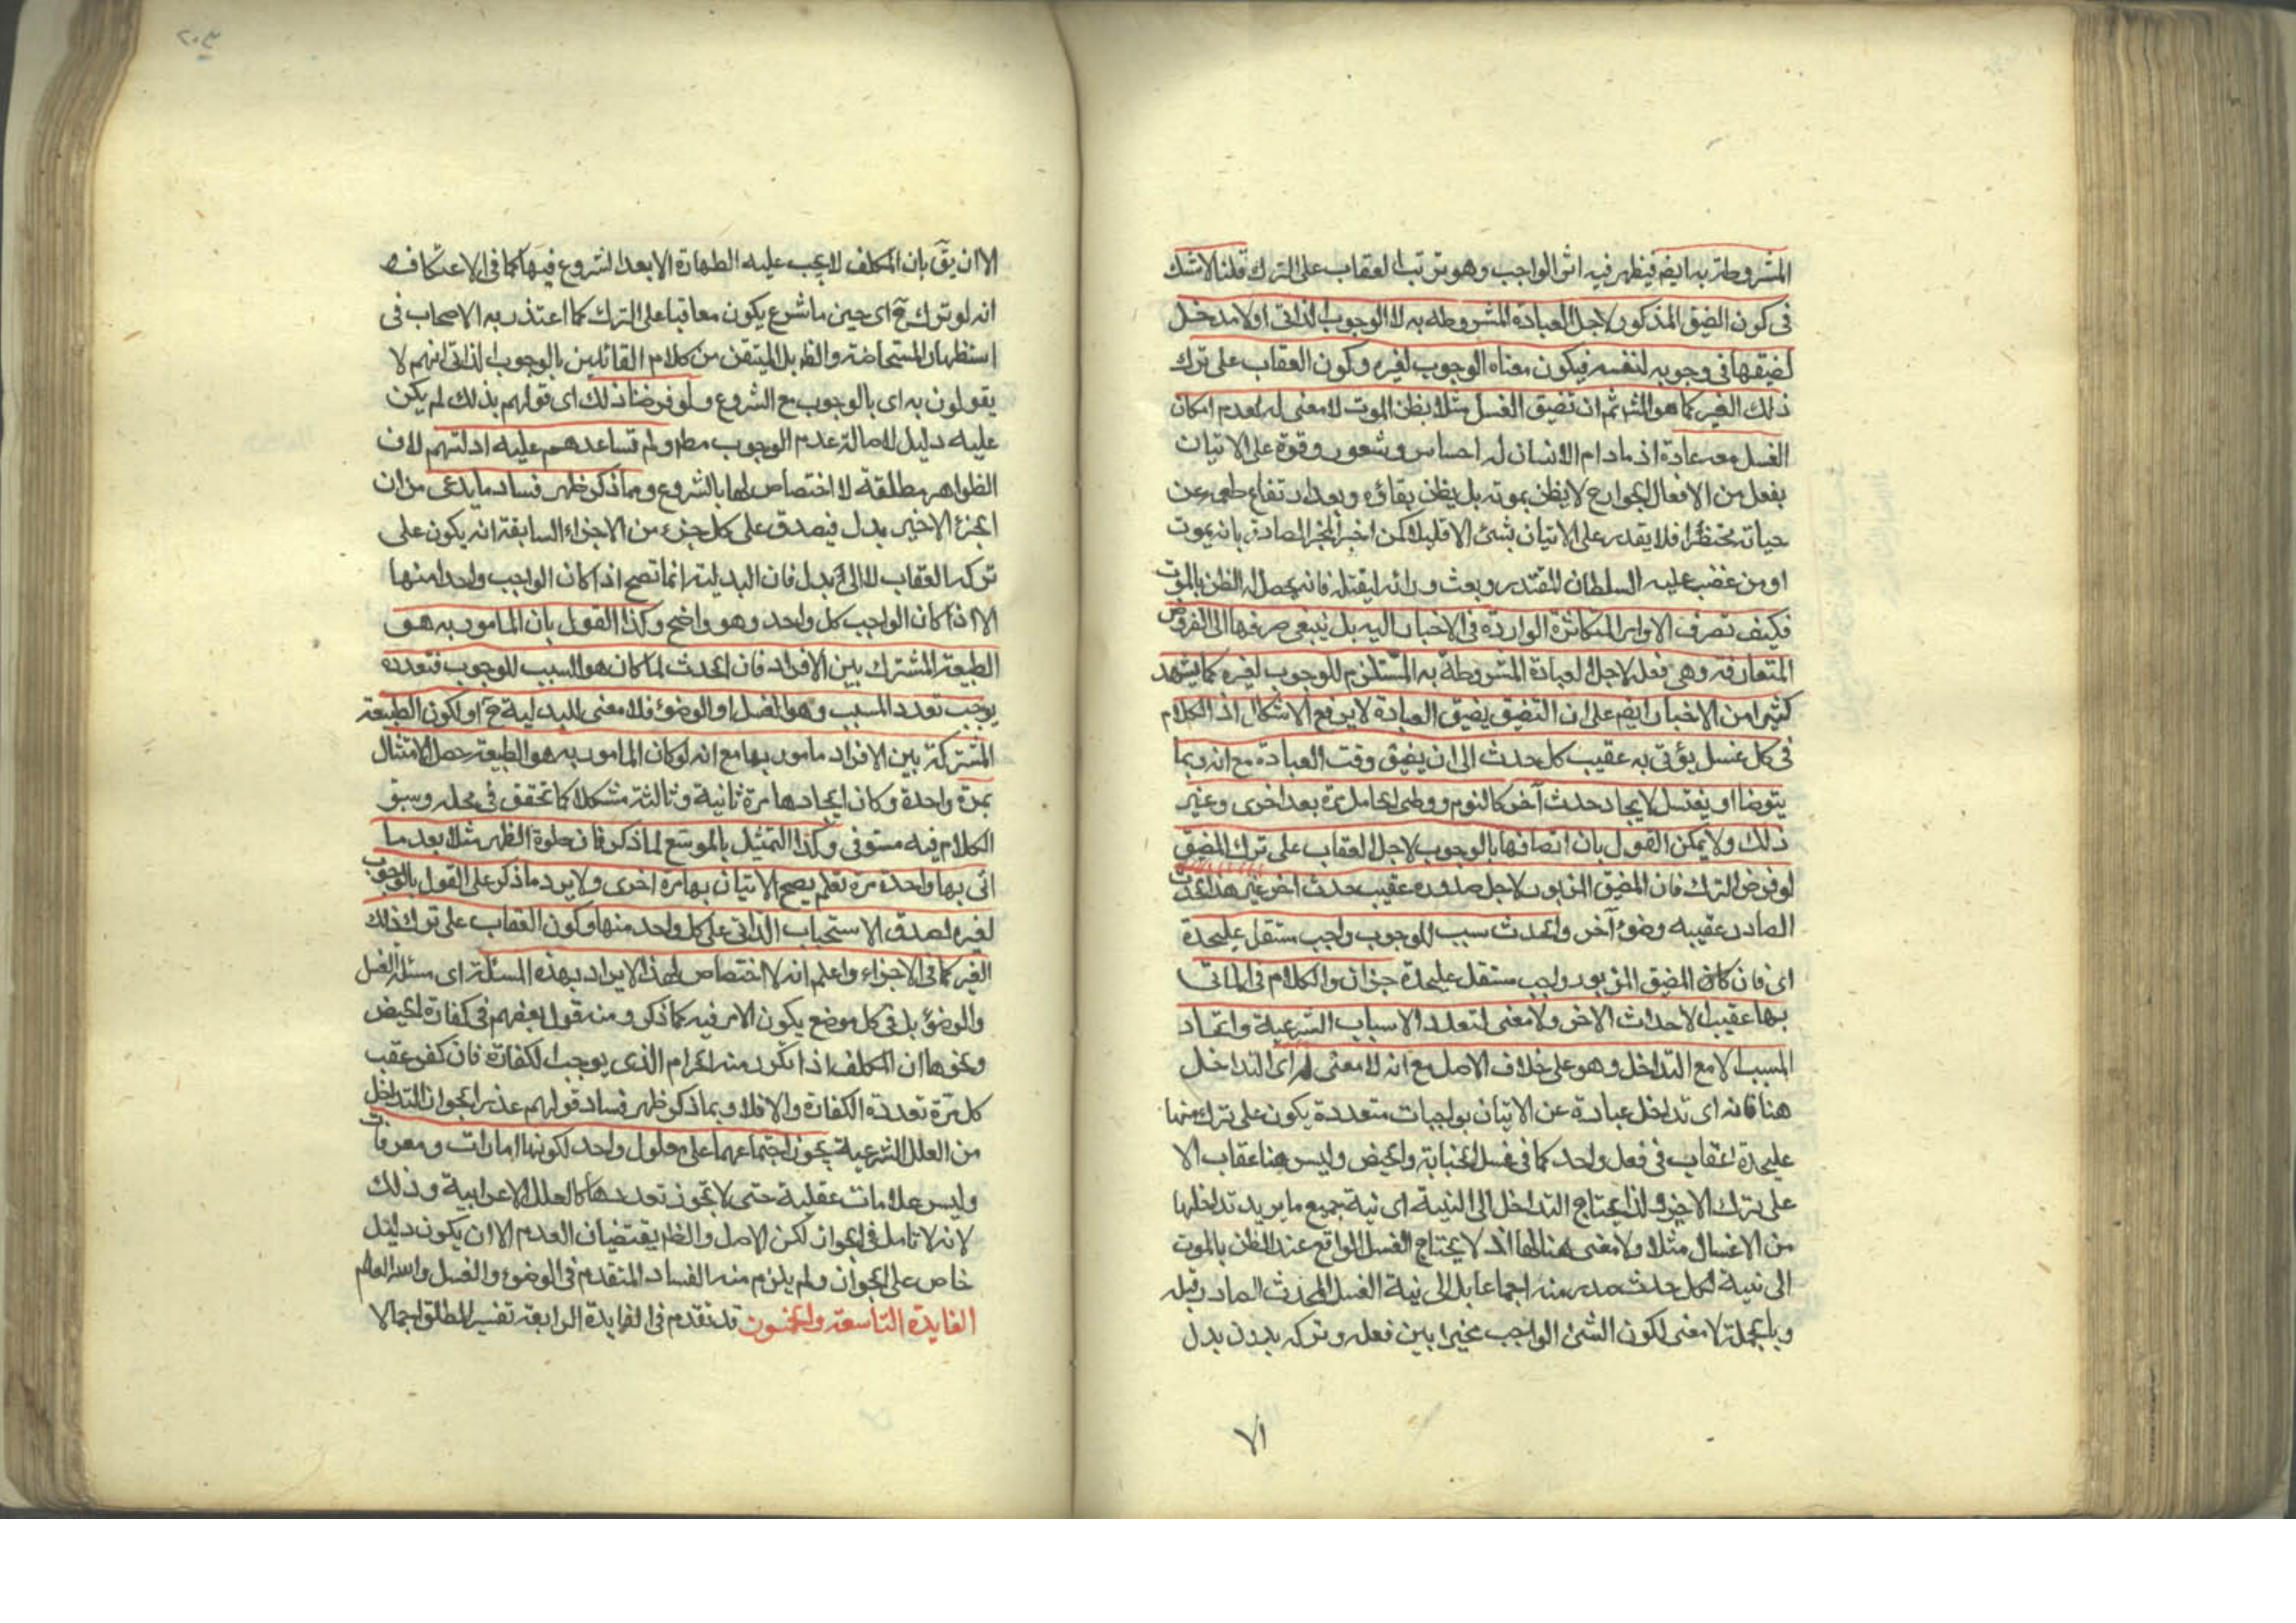 المشروطة به ايضا فيظهر فيه اثر الواجب وهو ترتب العقاب على الترك قلنا لا شك
فى كون الضيق المذكور لاجل العبادة المشروطة به لا الوجوب الذاتى اولا مدخل
لضيقها فى وجوبه لنفسه فيكون معناه الوجوب لغيره وكون العقاب على ترك
ذلك الغير كما هو المش ثم ان تضيق الغسل مثلا بظن الموت لا معنى له لعدم امكان
الغسل معه عادة اذ ما دام الانسان له احساس وشعور وقوة على الاتيان
بفعل من الافعال الجوارح لا يظن بموته بل يظن بقاؤه وبعد ارتفاع طمعه عن
حياته محتظرا فلا يقدر على الاتيان بشئ الا قليلا كمن اخبر المخبر الصادق بانه يموت
او من غضب عليه السلطان المقتدر وبعث ورائه ليقتله فانه يحصل له الظن بالموت
فكيف تصرف الاوامر المتكاثرة الواردة فى الاخبار اليه بل ينبغى صرفها الى الفروض
المتعارفة وهى فعله لاجل العبادة المشروطة به المستلزم للوجوب لغيره كما يشهد
كثيرا من الاخبار ايضا على ان التضيق بضيق العبادة لا يرفع الاشكال اذ الكلام
فى كل غسل يؤتى به عقيب كل حدث الى ان يضيق وقت العبادة مع انه ربما
يتوضا او يغتسل لايجاد حدث آخر كالنوم ووطى الحامل مرة بعد اخرى وغير
ذلك ولا يمكن القول بان اتصافها بالوجوب لاجل العقاب على ترك المضيق
لو فرض الترك فان المضيق المزبور لاجل صدوره عقيب حدث اخر غير هذا الحدث
الصادر عقيبه وضوء آخر والحدث سبب للوجوب واجب مستقل عليحدة
اى فان كان المضيق المزبور واجب مستقل عليحدة جزان والكلام فى الماتى
بها عقيب الاحداث الاخر ولا معنى لتعدد الاسباب الشرعية واتحاد
المسبب الا مع التداخل وهو على خلاف الاصل مع انه لا معنى له اى التداخل
هنا فانه اى تداخل عبادة عن الاتيان بواجبات متعددة يكون على ترك منها
عليحدة عقاب فى فعل واحد كما فى غسل الجنابة والحيض وليس هنا عقاب الا
على ترك الاخير ولذا يحتاج التداخل الى النية اى نية جميع ما يريد تداخلها
من الاغسال مثلا ولا معنى هنا لها اذ لا يحتاج الغسل الواقع عند الظن بالموت
الى نية لكل حدث صدر منه اجماعا بل الى نية الغسل المحدث الصادر قبله
وبالجملة لا معنى لكون الشئ الواجب مخيرا بين فعله وتركه بدون بدل
٧١
٢٠٣
الا ان يقَ بان المكلف لا يجب عليه الطهارة الا بعد الشروع فيها كما فى الاعتكاف
انه لو ترك حَ اى حين ما شرع يكون معاقبا على الترك كما اعتذر به الاصحاب فى
استظهار المستحاضة والظ بل المتيقن من كلام القائلين بالوجوب الذاتى انهم لا
يقولون به اى بالوجوب مع الشروع ولو فرضنا ذلك اى قولهم بذلك لم يكن
عليه دليل لاصالة عدم الوجوب مط ولم تساعدهم عليه ادلتهم لان
الظواهر مطلقة لا اختصاص لها بالشروع ومما ذكر ظهر فساد ما يدعى من ان
الجزء الاخير بدل فيصدق على كل جزء من الاجزاء السابقة انه يكون على
تركه العقاب لا الى بدل فان البدلية انما تصح اذا كان الواجب واحدا منها
الا اذا كان الواجب كل واحد وهو واضح وكذا القول بان المامور به هو
الطبيعة المشترك بين الافراد فان الحدث لما كان هو السبب للوجوب فتعدده
يوجب تعدد المسبب وهو الغسل او الوضوء فلا معنى للبدلية حَ او لكون الطبيعة
المشتركة بين الافراد مامور بها مع انه لو كان المامور به هو الطبيعة حصل الامتثال
بمرة واحدة وكان ايجادها مرة ثانية وثالثة مشكلا كما تحقق فى محله وسبق
الكلام فيه مستوفى وكذا التمثيل بالموسع لما ذكر فان صلوة الظهر مثلا بعد ما
اتى بها واحدة مرة تعلم يصح الاتيان بها مرة اخرى ولا يرد ما ذكر على القول بالوجوب
لغيره لصدق الاستحباب الذاتى على كل واحد منها وكون العقاب على ترك ذلك
الغير كما فى الاجزاء واعلم انه لا اختصاص لهذا الايراد بهذه المسئلة اى مسئلة الغسل
والوضوء بل فى كل موضع يكون الامر فيه كما ذكر ومنه قول بعضهم فى كفارة الحيض
ونحوها ان المكلف اذا تكرر منه الحرام الذى يوجب الكفارة فان كفر عقب
كل مرة تعددة الكفارة والا فلا وبما ذكر ظهر فساد قولهم عذر الجواز التداخل
من العلل الشرعية يجوز اجتماعهما على معلول واحد لكونها امارات ومعرفات
وليس علامات عقلية حتى لا تجوز تعددها كالعلل الاعرابية وذلك
لانه لا تامل فى الجواز لكن الاصل والظ يقتضيان العدم الا ان يكون دليل
خاص على الجواز ولم يلزم منه الفساد المتقدم فى الوضوء والغسل والله العالم
الفايدة التاسعة والخمسون قد تقدم فى الفايدة الرابعة تفسير المطلق اجمالا